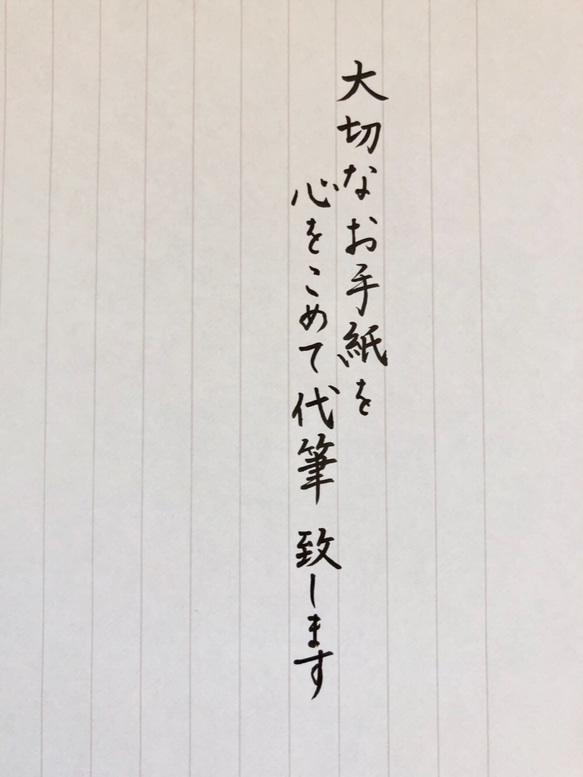 大切なお手紙を
心をこめて代筆 致します